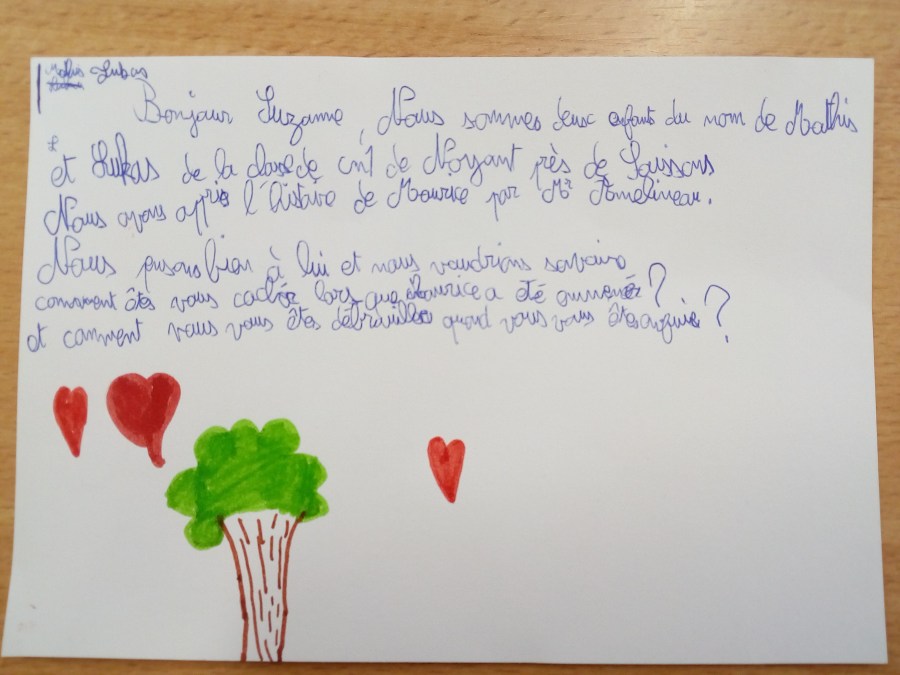 Mathis Lukas
Bonjour Suzanne, Nous sommes deux enfants du nom de Mathis
et Lukas de la classe de cm1 de Noyant près de Soissons
Nous avons appris l'histoire de Maurice par Mr Amelineau.
Nous pensons bien à lui et nous voudrions savoir
comment êtes vous cachée lorsque Maurice a été emmener?
et comment vous vous êtes débrouiller quand vous vous êtes enfuie?